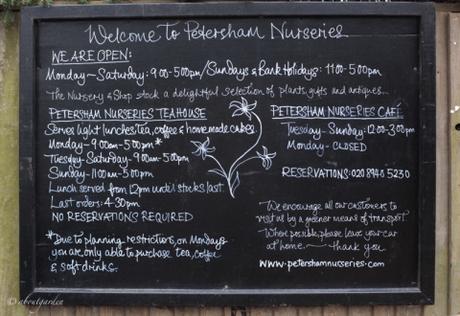 Welcome to Petersham Nurseries
WE ARE OPEN:
Monday ~ Saturday: 9·00-5·00pm/Sundays & Bank Holidays: 11·00-5·00pm
The Nursery & Shop stock a delightful selection of plants, gifts and antiques...
PETERSHAM NURSERIES TEAHOUSE
Serves light lunches, tea, coffee & home made cakes
Monday - 9·00am - 5·00pm*
Tuesday - Saturday - 9·00am - 5·00pm
Sunday - 11·00am - 5·00pm
Lunch served from 12pm until stocks last
Last orders: 4·30pm
NO RESERVATIONS REQUIRED
*Due to planning restrictions, on Mondays
you are only able to purchase tea, coffee
& soft drinks.
PETERSHAM NURSERIES CAFÉ
Tuesday - Sunday: 12·00-3·00pm
Monday - CLOSED
RESERVATIONS: 020 8940 5230
We encourage all our customers to
visit us by a greener means of transport
Where possible, please leave your car
at home. ~ thank you
www.petershamnurseries.com
© aboutgarden